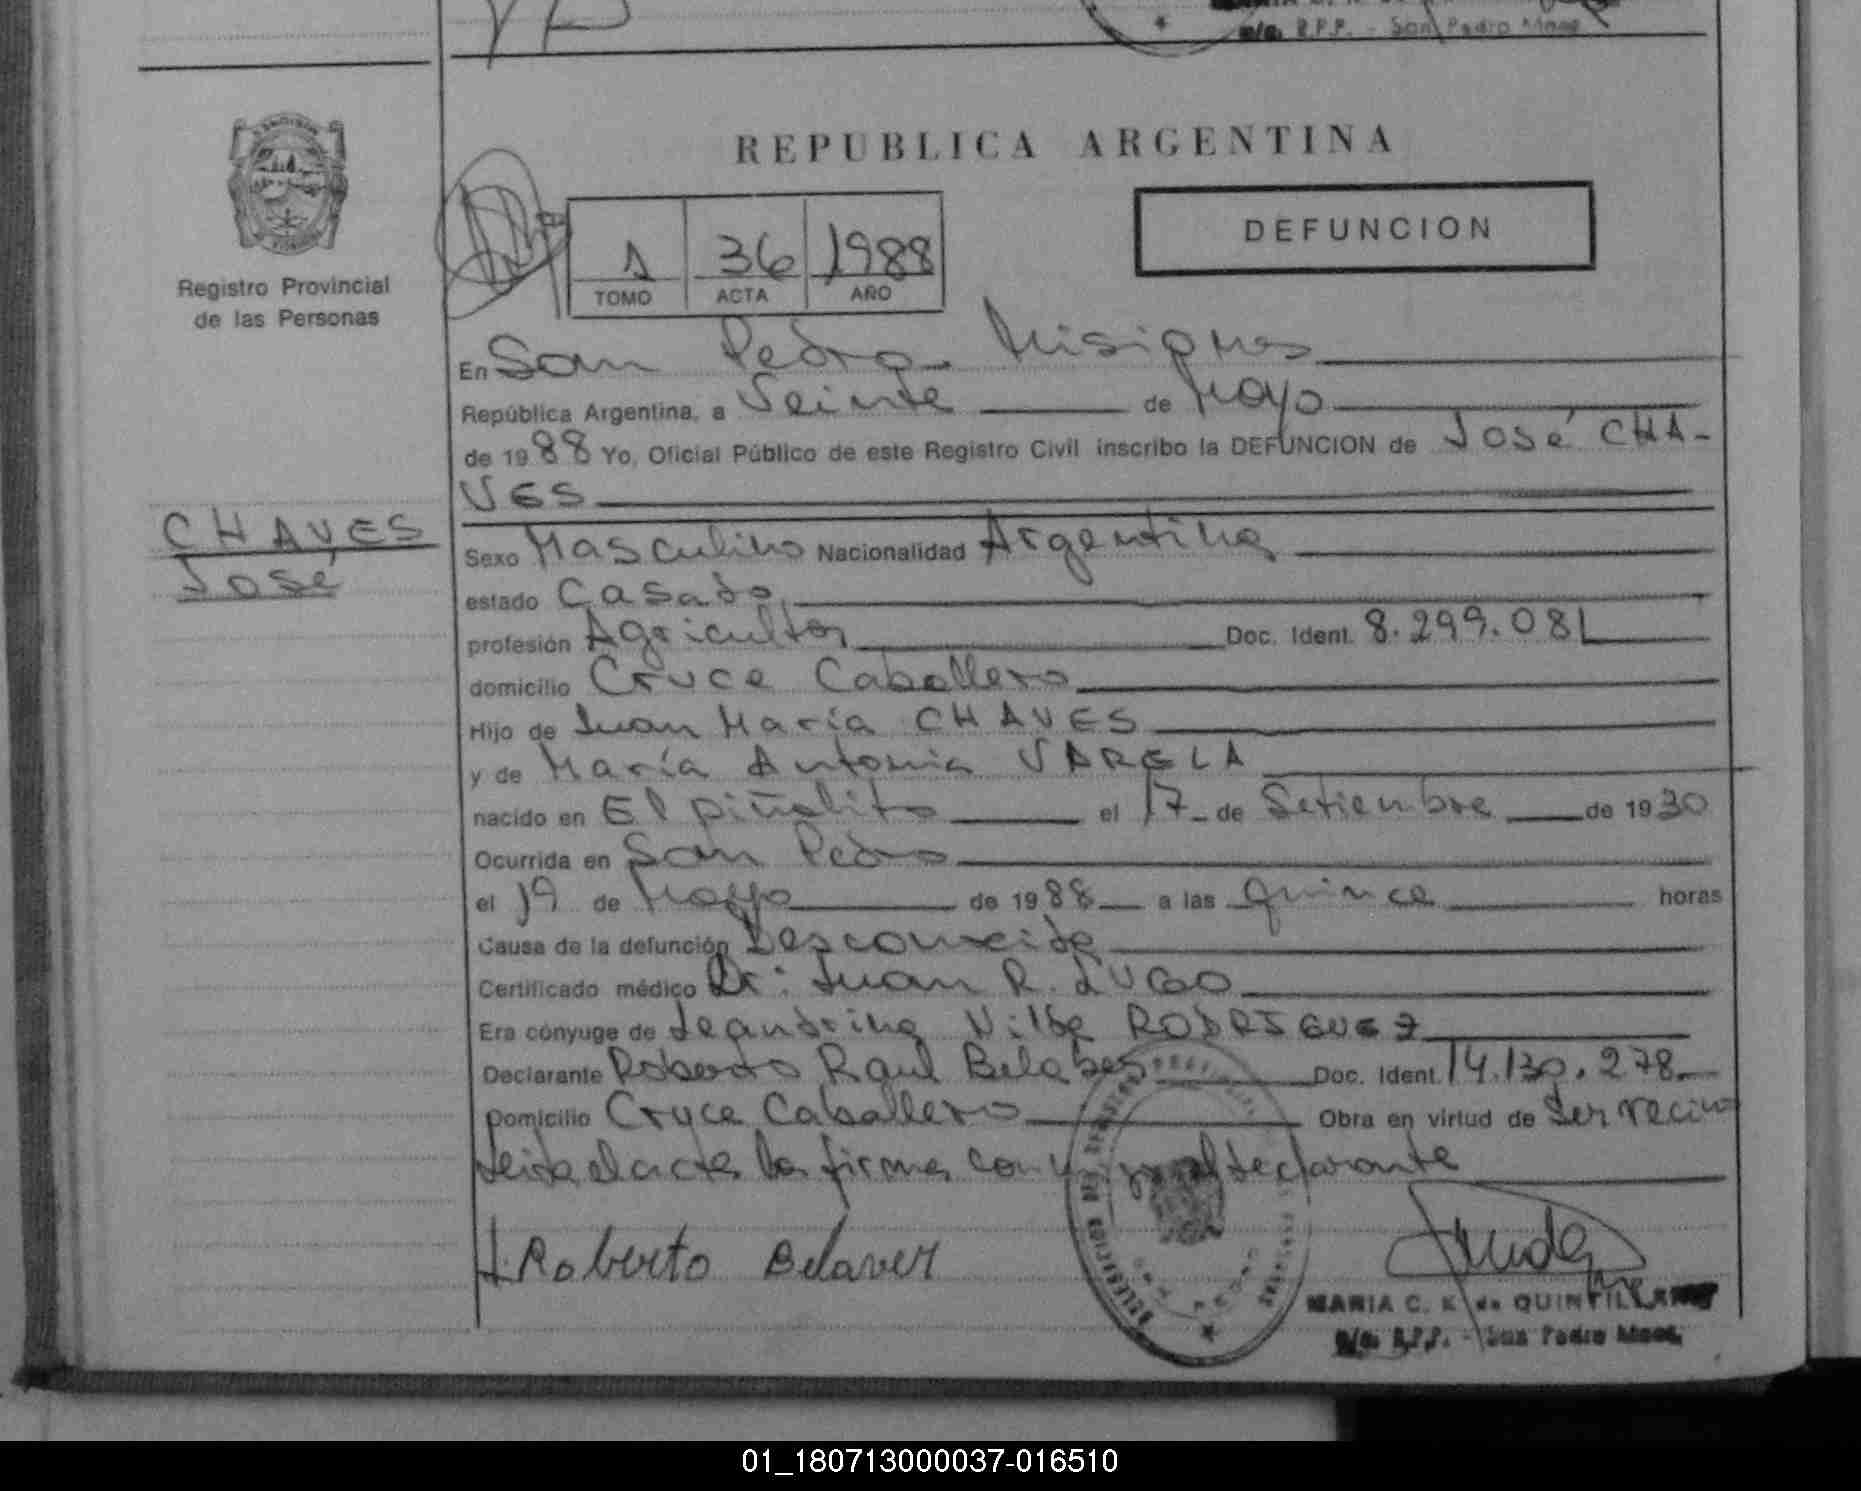 S.P.P. - San Pedro Mnes
REPUBLICA ARGENTINA
DEFUNCION
1 36 1988
TOMO ACTA AÑO
Registro Provincial
de las Personas
En San Pedro Misiones
República Argentina, a Veinte de Mayo
de 1988 Yo, Oficial Público de este Registro Civil inscribo la DEFUNCION de José CHA-
VES
CHAVES
José
Sexo Masculino Nacionalidad Argentina
estado Casado
profesión Agricultor Doc. Ident. 8.299.081
domicilio Cruce Caballero
Hijo de Juan María CHAVES
y de María Antonia VARELA
nacido en El piñalito el 17 de Setiembre de 1930
Ocurrida en San Pedro
el 19 de Mayo de 1988 a las quince horas
Causa de la defunción Desconocida
Certificado médico Dr: Juan R. LUGO
Era cónyuge de Leandrina Nilda RODRIGUEZ
Declarante Roberto Raul Belabes Doc. Ident. 14.130.278
Domicilio Cruce Caballero Obra en virtud de Ser vecino
Leida el acta la firma el declarante
Roberto Belaver
MARIA C. K. de QUINTILLAN
R.P.P. - San Pedro Mnes.
01_180713000037-016510